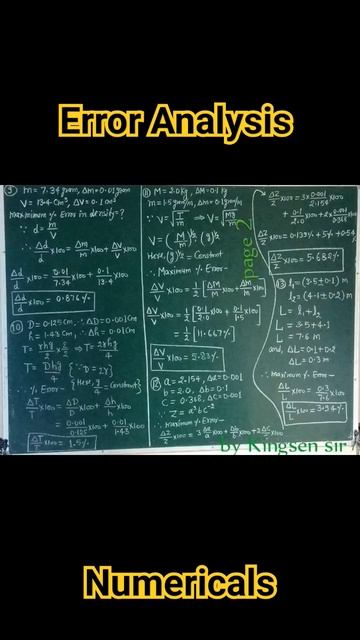 Error Analysis
9) m = 7.34 gram, Δm = 0.01 gram
V = 13.4 cm³, ΔV = 0.1 cm³
maximum % Error in density = ?
∵ d = m/V
∴ Δd/d x100 = Δm/m x100 + ΔV/V x100
Δd/d x100 = 0.01/7.34 x100 + 0.1/13.4 x100
Δd/d x100 = 0.876 %
10) D = 0.125 cm, ∴ ΔD = 0.001 cm
h = 1.43 cm, ∴ Δh = 0.01 cm
T = rhg/2 x 2/2 ⇒ T = 2rhg/4
T = Dhg/4 {∵ D = 2r}
{Here, g/4 = Constant}
∴ % Error -
ΔT/T x100 = ΔD/D x100 + Δh/h x100
= 0.001/0.125 x100 + 0.01/1.43 x100
ΔT/T x100 = 1.5 %
11) M = 2.0 kg, ΔM = 0.1 kg
m = 1.5 gram/m, Δm = 0.1 gram/m
∵ V = √T/m ⇒ V = √Mg/m
V = (M/m)^1/2 · (g)^1/2
Here, (g)^1/2 = Constant
∴ Maximum % Error -
ΔV/V x100 = 1/2 [ΔM/M x100 + Δm/m x100]
ΔV/V x100 = 1/2 [0.1/2.0 x100 + 0.1/1.5 x100]
= 1/2 [11.667 %]
ΔV/V x100 = 5.83 %
12) a = 2.154, Δa = 0.001
b = 2.0, Δb = 0.1
C = 0.368, ΔC = 0.001
∵ Z = a³bC⁻²
∴ maximum % Error -
ΔZ/Z x100 = 3 Δa/a x100 + Δb/b x100 + 2 ΔC/C x100
ΔZ/Z x100 = 3 x 0.001/2.154 x100
+ 0.1/2.0 x100 + 2 x 0.001/0.368 x100
ΔZ/Z x100 = 0.139 % + 5 % + 0.54
ΔZ/Z x100 = 5.682 %
13) l₁ = (3.5 ± 0.1) m
l₂ = (4.1 ± 0.2) m
L = l₁ + l₂
L = 3.5 + 4.1
L = 7.6 m
and, ΔL = 0.1 + 0.2
ΔL = 0.3 m
∴ maximum % Error -
ΔL/L x100 = 0.3/7.6 x100
ΔL/L x100 = 3.94 %
page 2
by Kingsen sir
Numericals